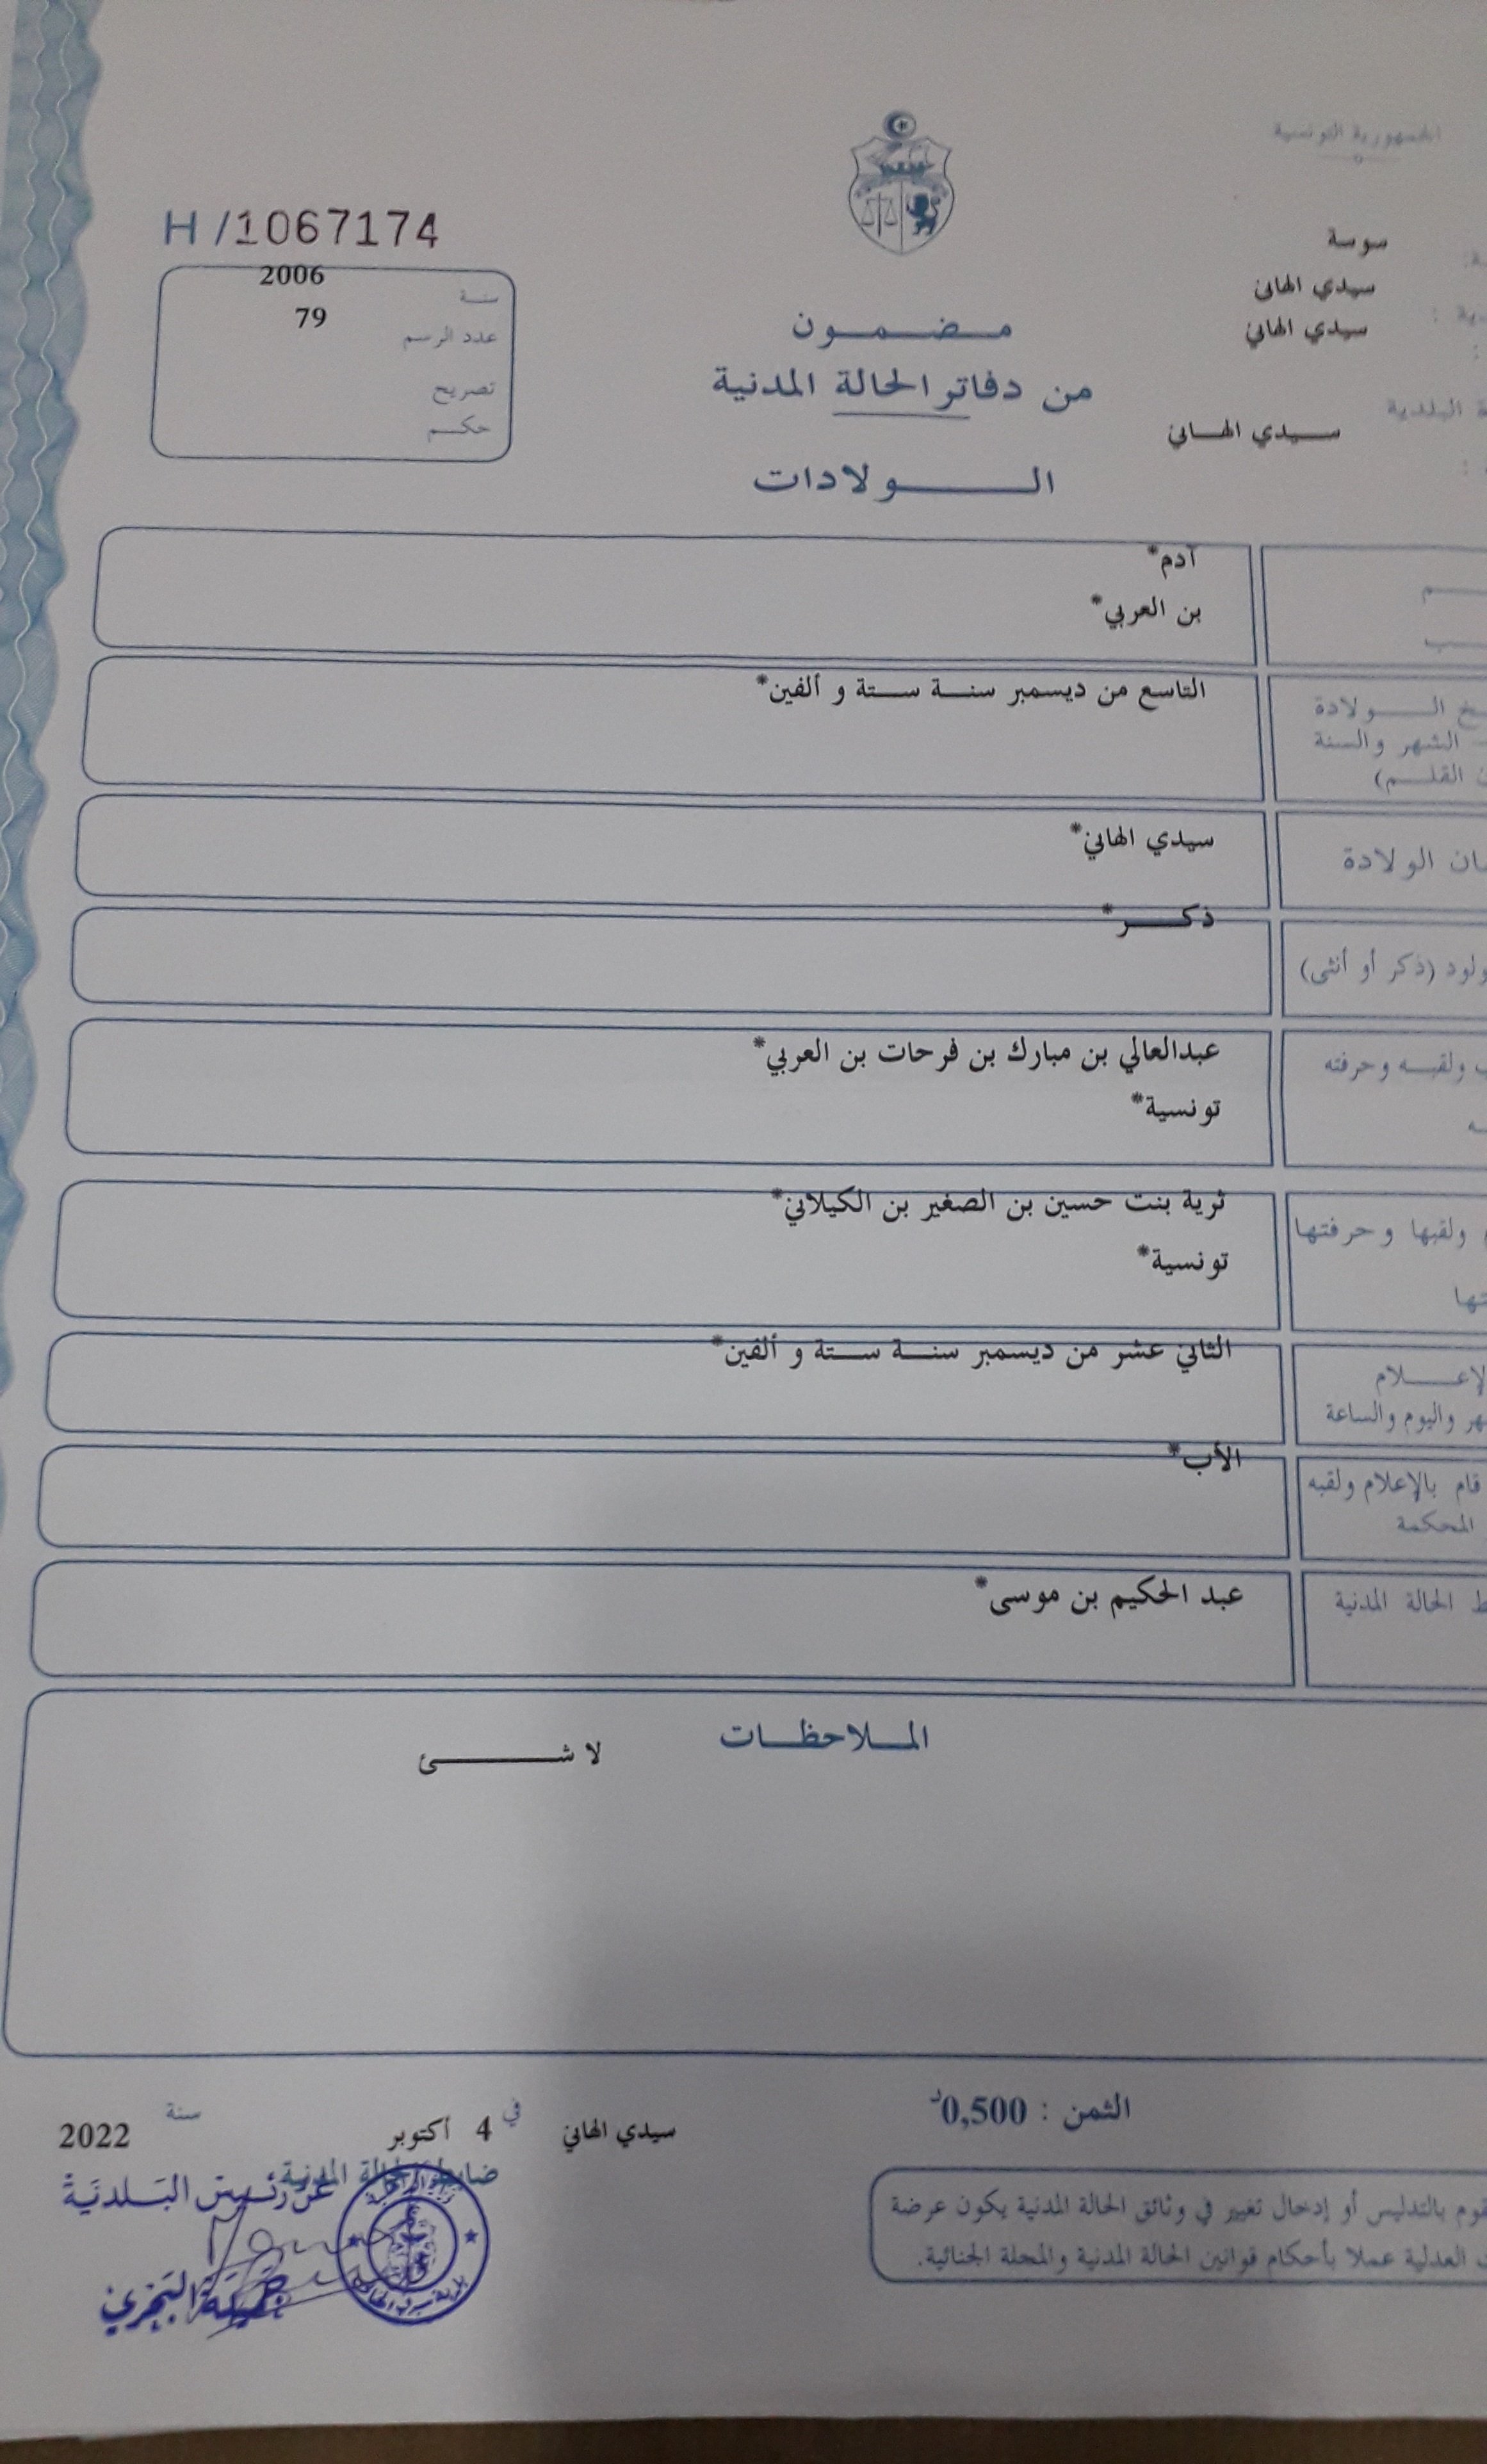 الجمهورية التونسية
سوسة
سيدي الهاني
سيدي الهاني
البلدية
سيدي الهاني
H /1067174
سنة 2006
عدد الرسم 79
تصريح
حكم
مضمون
من دفاتر الحالة المدنية
الولادات
آدم*
بن العربي*
الولادة
التاسع من ديسمبر سنة ستة و ألفين*
الشهر والسنة
القلم)
الولادة
سيدي الهاني*
ذكر*
(ذكر أو أنثى)
ولقبه وحرفته
عبدالعالي بن مبارك بن فرحات بن العربي*
تونسية*
ولقبها وحرفتها
ثرية بنت حسين بن الصغير بن الكيلاني*
تونسية*
الثاني عشر من ديسمبر سنة ستة و ألفين*
واليوم والساعة
الأب*
قام بالإعلام ولقبه
المحكمة
الحالة المدنية
عبد الحكيم بن موسى*
الملاحظات
لا شئ
الثمن : 0,500د
سيدي الهاني في 4 أكتوبر سنة 2022
ضابط الحالة المدنية
عن رئيس البلدية
بالتدليس أو إدخال تغيير في وثائق الحالة المدنية يكون عرضة
العدلية عملا بأحكام قوانين الحالة المدنية والمجلة الجنائية.